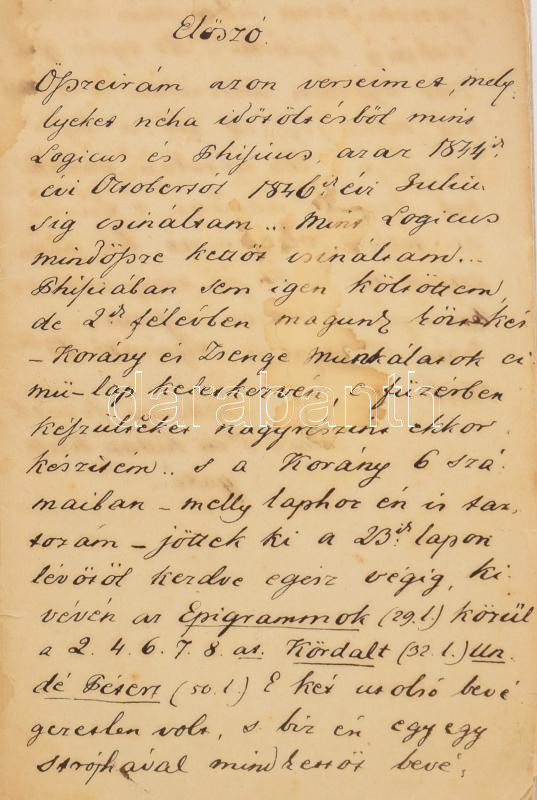 Előszó.
Összeirám azon verseimet, mely-
lyeket néha időtöltésből mint
Logicus és Phisicus, azaz 1844ik
évi Octobertől 1846ik évi Juliu-
sig csináltam... Mint Logicus
mindössze kettőt csináltam...
Phisicában sem igen költöttem,
de 2ik félévben magunk közt kés
- Korány és Zsenge munkálatok ci
mü-lap keletkezvén, e füzérben
készülteket nagyrészint ekkor
készitém.. s a Korány 6 szá-
maiban - melly laphoz én is tar-
tozám - jöttek ki a 23ik lapon
lévőtől kezdve egész végig, ki-
vévén az Epigrammok (29.l.) közül
a 2. 4. 6. 7. 8. at. Kördalt (32.l.)
dé Péterc (50.l.) E két utolsó bevé
gezetlen volt, s biz én egy egy
strófával mindkettőt bevé-
darabanth